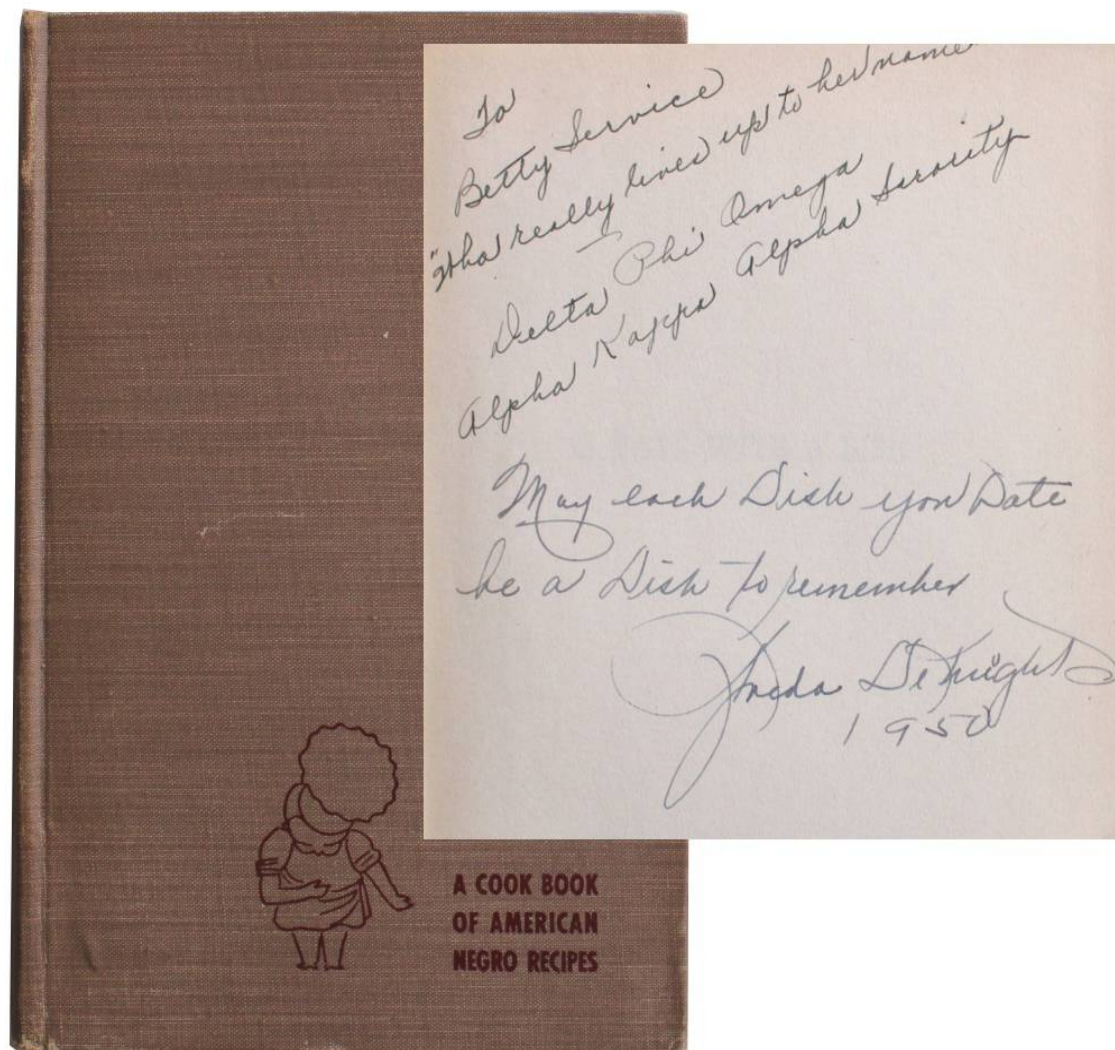 To
Betty Service
"Who really lives up to her name"
Delta Phi Omega
Alpha Kappa Alpha Sorority
May each Dish you Date
be a Dish to remember
Freda DeKnight
1950
A COOK BOOK
OF AMERICAN
NEGRO RECIPES